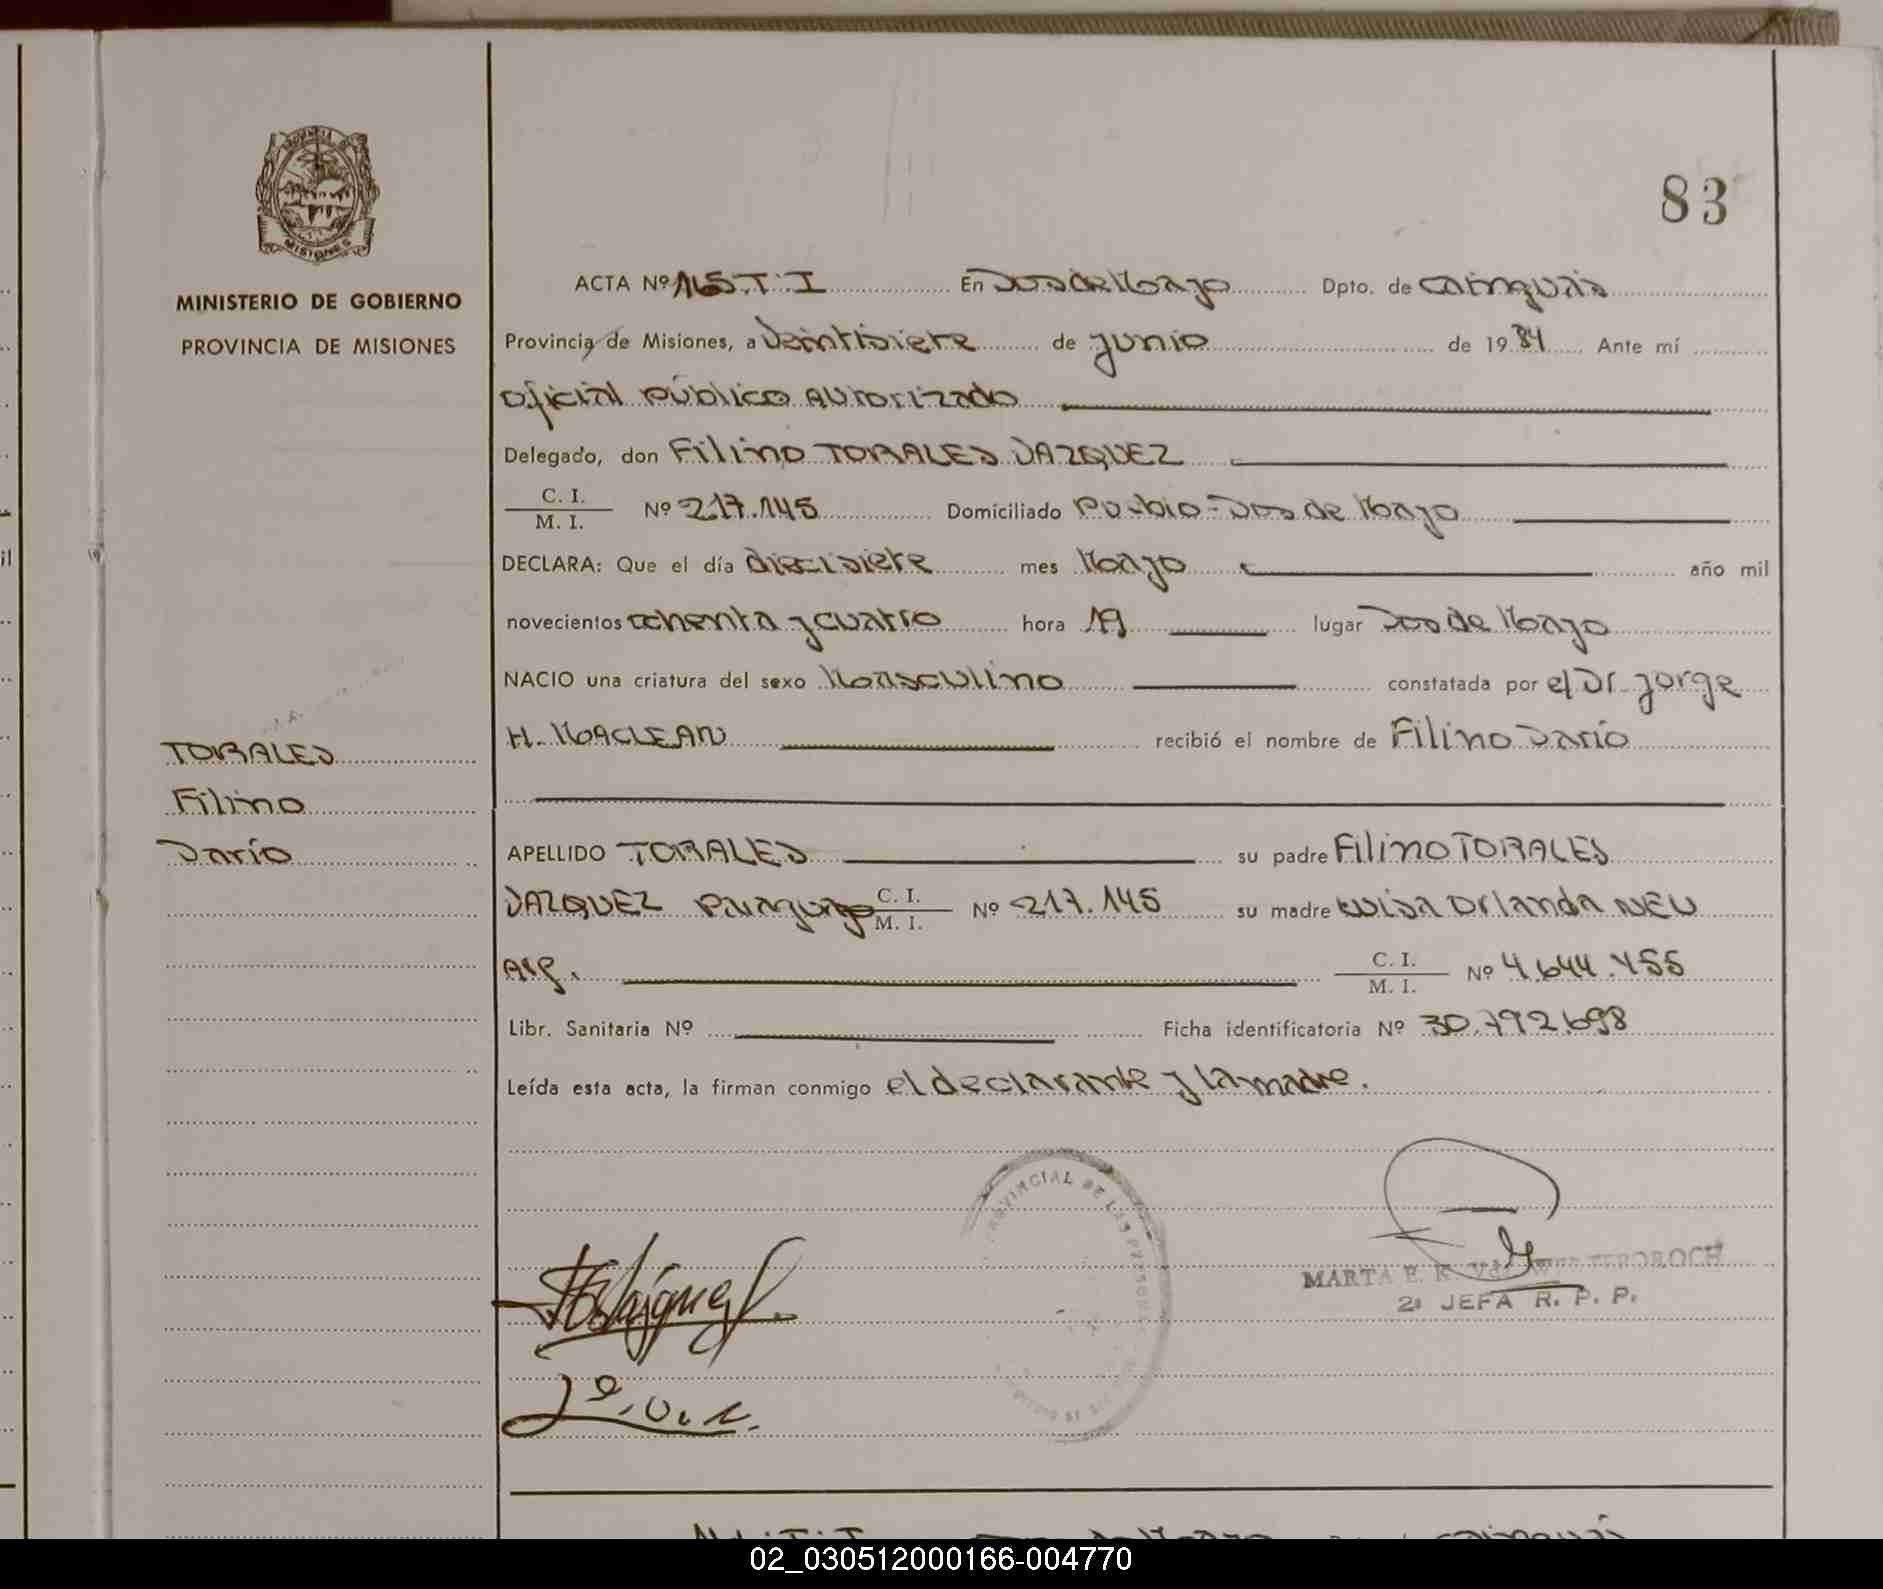 83
MISIONES
MINISTERIO DE GOBIERNO
PROVINCIA DE MISIONES
ACTA Nº 165.T.I En Dos de Mayo Dpto. de Cainguás
Provincia de Misiones, a Veintisiete de junio de 1984 Ante mí
Oficial Público Autorizado
Delegado, don Filino TORALES VAZQUEZ
C. I.
M. I. Nº 217.145 Domiciliado Pueblo-Dos de Mayo
DECLARA: Que el día diecisiete mes Mayo año mil
novecientos ochenta y cuatro hora 19 lugar Dos de Mayo
NACIO una criatura del sexo Masculino constatada por el Dr. Jorge
H. MACLEAN recibió el nombre de Filino Darío
TORALES
Filino
Darío
APELLIDO TORALES su padre Filino TORALES
VAZQUEZ Paraguayo C. I.
M. I. Nº 217.145 su madre Luisa Orlanda NEU
Arg. C. I.
M. I. Nº 4.644.455
Libr. Sanitaria Nº Ficha identificatoria Nº 30.792.698
Leída esta acta, la firman conmigo el declarante y la madre.
PROVINCIAL DE LAS PERSONAS
MARTA E. K. Vda.
2ª JEFA R. P. P.
02_030512000166-004770